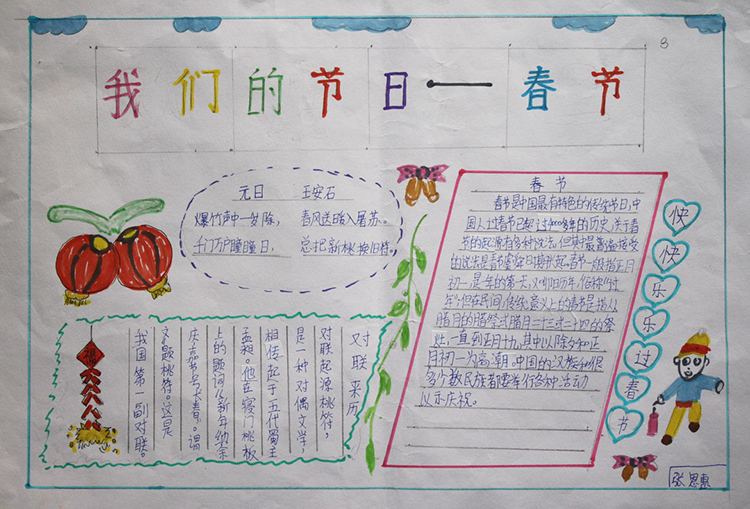 我们的节日一春节
8
元日 王安石
爆竹声中一岁除，春风送暖入屠苏。
千门万户曈曈日，总把新桃换旧符。
对联来历
对联起源桃符，
是一种对偶文学，
相传起于五代蜀主
孟昶。他在寝门桃板
上的题词《新年纳余
庆，嘉节号长春》。谓
文《题桃符》。这是
我国第一副对联。
春节
春节是中国最有特色的传统节日，中
国人过春节已超过4000多年的历史，关于春
节的起源有多种说法，但其中最普遍接受
的说法是春节虞舜日期兴起。春节一般指正月
初一，是年的第一天，又叫阴历年，俗称"过
年"。但在民间，传统意义上的春节是指从
腊月的腊祭或腊月二十三或二十四的祭
灶，一直到正月十九，其中以除夕和正
月初一为高潮。中国的汉族和很
多少数民族都要举行各种活动
以示庆祝。
快
快
乐
乐
过
春
节
张思惠